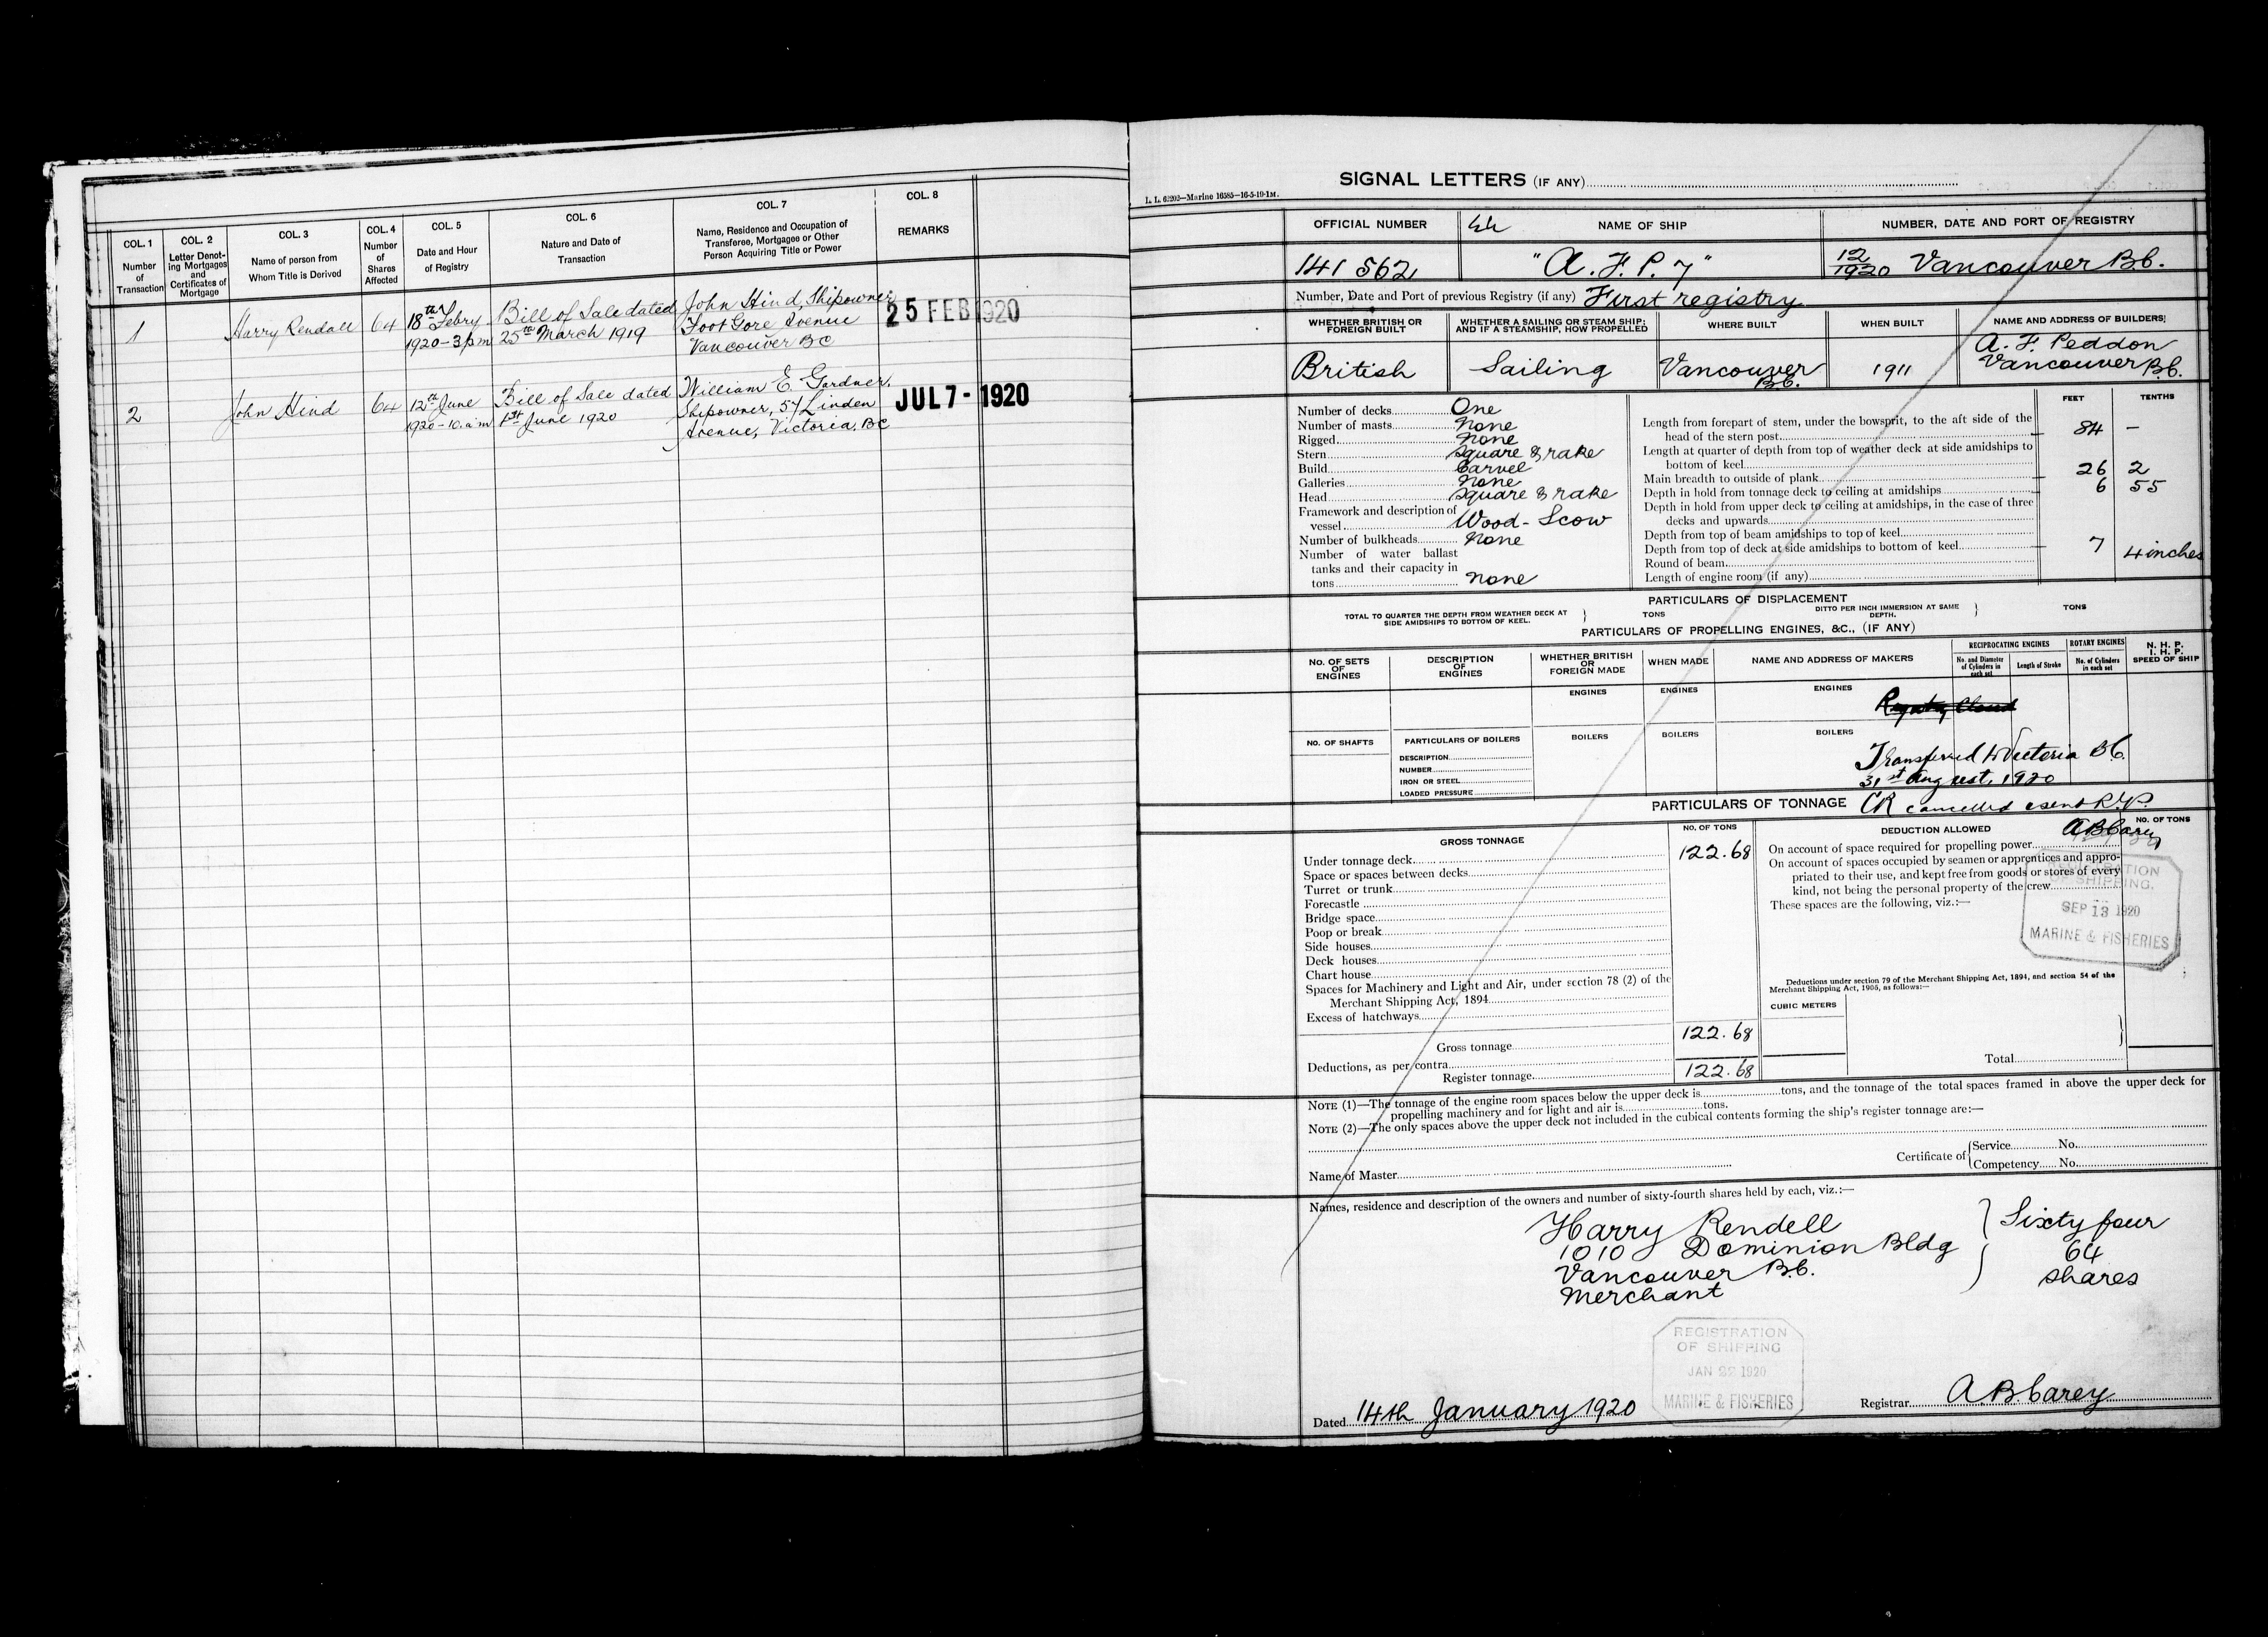 COL. 1
Number
of
Transaction
COL. 2
Letter Denot-
ing Mortgages
and
Certificates of
Mortgage
COL. 3
Name of person from
Whom Title is Derived
COL. 4
Number
of
Shares
Affected
COL. 5
Date and Hour
of Registry
COL. 6
Nature and Date of
Transaction
COL. 7
Name, Residence and Occupation of
Transferee, Mortgagee or Other
Person Acquiring Title or Power
COL. 8
REMARKS
1
Harry Rendall
64
18th Febry
1920-3pm
Bill of Sale dated
25th March 1919
John Hind, Shipowner
Foot Gore Avenue
Vancouver BC
25 FEB 1920
2
John Hind
64
12th June
1920-10.am
Bill of Sale dated
1st June 1920
William E. Gardner,
Shipowner, 57 Linden
Avenue, Victoria, BC
JUL 7 - 1920
SIGNAL LETTERS (IF ANY)
L. L. 62202—Marine 16585—16-5-19-1M.
OFFICIAL NUMBER
NAME OF SHIP
NUMBER, DATE AND PORT OF REGISTRY
141 562
"A. F. P. 7"
12/1920 Vancouver B.C.
Number, Date and Port of previous Registry (if any) First registry
WHETHER BRITISH OR
FOREIGN BUILT
WHETHER A SAILING OR STEAM SHIP;
AND IF A STEAMSHIP, HOW PROPELLED
WHERE BUILT
WHEN BUILT
NAME AND ADDRESS OF BUILDERS
British
Sailing
Vancouver
B.C.
1911
A. F. Peddon
Vancouver
B.C.
Number of decks One
Number of masts None
Rigged None
Stern Square & rake
Build Carvel
Galleries None
Head Square & rake
Framework and description of
vessel Wood - Scow
Number of bulkheads None
Number of water ballast
tanks and their capacity in
tons None
FEET
TENTHS
Length from forepart of stem, under the bowsprit, to the aft side of the
head of the stern post 84 –
Length at quarter of depth from top of weather deck at side amidships to
bottom of keel
Main breadth to outside of plank 26 2
Depth in hold from tonnage deck to ceiling at amidships 6 55
Depth in hold from upper deck to ceiling at amidships, in the case of three
decks and upwards
Depth from top of beam amidships to top of keel
Depth from top of deck at side amidships to bottom of keel 7 4 inches
Round of beam
Length of engine room (if any)
PARTICULARS OF DISPLACEMENT
TOTAL TO QUARTER THE DEPTH FROM WEATHER DECK AT
SIDE AMIDSHIPS TO BOTTOM OF KEEL.
TONS
DITTO PER INCH IMMERSION AT SAME
DEPTH.
TONS
PARTICULARS OF PROPELLING ENGINES, &C., (IF ANY)
NO. OF SETS
OF
ENGINES
DESCRIPTION
OF
ENGINES
WHETHER BRITISH
OR
FOREIGN MADE
WHEN MADE
NAME AND ADDRESS OF MAKERS
RECIPROCATING ENGINES
No. and Diameter
of Cylinders in
each set
Length of Stroke
ROTARY ENGINES
No. of Cylinders
in each set
N. H. P.
I. H. P.
SPEED OF SHIP
ENGINES
ENGINES
ENGINES
Registry Closed
NO. OF SHAFTS
PARTICULARS OF BOILERS
BOILERS
BOILERS
BOILERS
DESCRIPTION
NUMBER
IRON OR STEEL
LOADED PRESSURE
Transferred to Victoria B.C.
31st August, 1920
PARTICULARS OF TONNAGE
CR cancelled & sent R.G.
AB Carey
GROSS TONNAGE
NO. OF TONS
DEDUCTION ALLOWED
NO. OF TONS
Under tonnage deck 122.68
Space or spaces between decks
Turret or trunk
Forecastle
Bridge space
Poop or break
Side houses
Deck houses
Chart house
Spaces for Machinery and Light and Air, under section 78 (2) of the
Merchant Shipping Act, 1894
Excess of hatchways
Gross tonnage 122.68
Deductions, as per contra
Register tonnage 122.68
On account of space required for propelling power
On account of spaces occupied by seamen or apprentices and appro-
priated to their use, and kept free from goods or stores of every
kind, not being the personal property of the crew
These spaces are the following, viz.:—
REGISTRATION
OF SHIPPING.
SEP 13 1920
MARINE & FISHERIES
Deductions under section 79 of the Merchant Shipping Act, 1894, and section 54 of the
Merchant Shipping Act, 1906, as follows:—
CUBIC METERS
Total
NOTE (1)—The tonnage of the engine room spaces below the upper deck is tons, and the tonnage of the total spaces framed in above the upper deck for
propelling machinery and for light and air is tons.
NOTE (2)—The only spaces above the upper deck not included in the cubical contents forming the ship's register tonnage are:—
Name of Master
Certificate of
Service No.
Competency No.
Names, residence and description of the owners and number of sixty-fourth shares held by each, viz.:—
Harry Rendell
1010 Dominion Bldg
Vancouver B.C.
Merchant
Sixty four
64
shares
REGISTRATION
OF SHIPPING
JAN 22 1920
MARINE & FISHERIES
Dated 14th January 1920
Registrar A B Carey